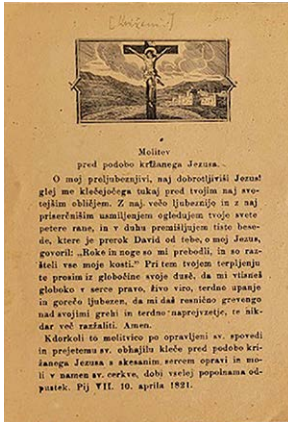 [Križani.]
Molitev
pred podobo križanega Jezusa.
O moj preljubeznjivi, naj dobrotljiviši Jezus!
glej me klečejočega tukaj pred tvojim naj svo-
tejšim obličjem. Z naj večo ljubeznijo in z naj
priserčnišim usmiljenjem ogledujem tvoje svete
petere rane, in v duhu premišljujem tiste bese-
de, ktere je prerok David od tebe, o moj Jezus,
govoril: „Roke in noge so mi prebodli, in so raz-
šteli vse moje kosti.“ Pri tem tvojem terpljenju
te prosim iz globočine svoje duše, da mi vtisneš
globoko v serce pravo, živo viro, terdno upanje
in gorečo ljubezen, da mi daš resnično grevengo
nad svojimi grehi in terdno naprejvzetje, te nik-
dar več razžaliti. Amen.
Kdorkoli to molitvico po opravljeni sv. spovedi
in prejetemu sv. obhajilu kleče pred podobo kri-
žanega Jezusa s skesanim sercem opravi in mo-
li v namen sv. cerkve, dobi vselej popolnama od-
pustek. Pij VII. 10. aprila 1821.